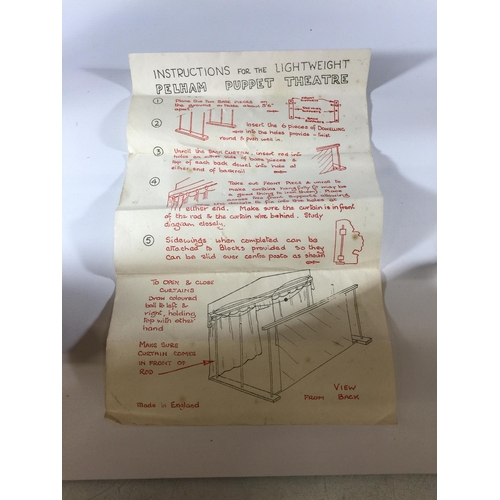 INSTRUCTIONS FOR THE LIGHTWEIGHT
PELHAM PUPPET THEATRE
① Place the two Base pieces on
the ground or table about 5'6"
apart
② Insert the 6 pieces of DOWELLING
rod into the holes provided - twist
round & push well in.
③ Unroll the BACK CURTAIN, insert rod into
holes on either side of base pieces &
top of each back dowel into hole at
either end of backrail
④ Take out FRONT PIECE & unroll to
make curtains hang fully (it may be
a good thing to iron them). Place
across the front supports allowing
the dowels to fix into the holes at
either end. Make sure the curtain is in front
of the rod & the curtain wire behind. Study
diagram closely.
⑤ Sidewings when completed can be
attached to Blocks provided so they
can be slid over centre posts as shown
TO OPEN & CLOSE
CURTAINS
Draw coloured
ball to left &
right, holding
top with other
hand
MAKE SURE
CURTAIN COMES
IN FRONT OF
ROD
VIEW
FROM BACK
Made in England